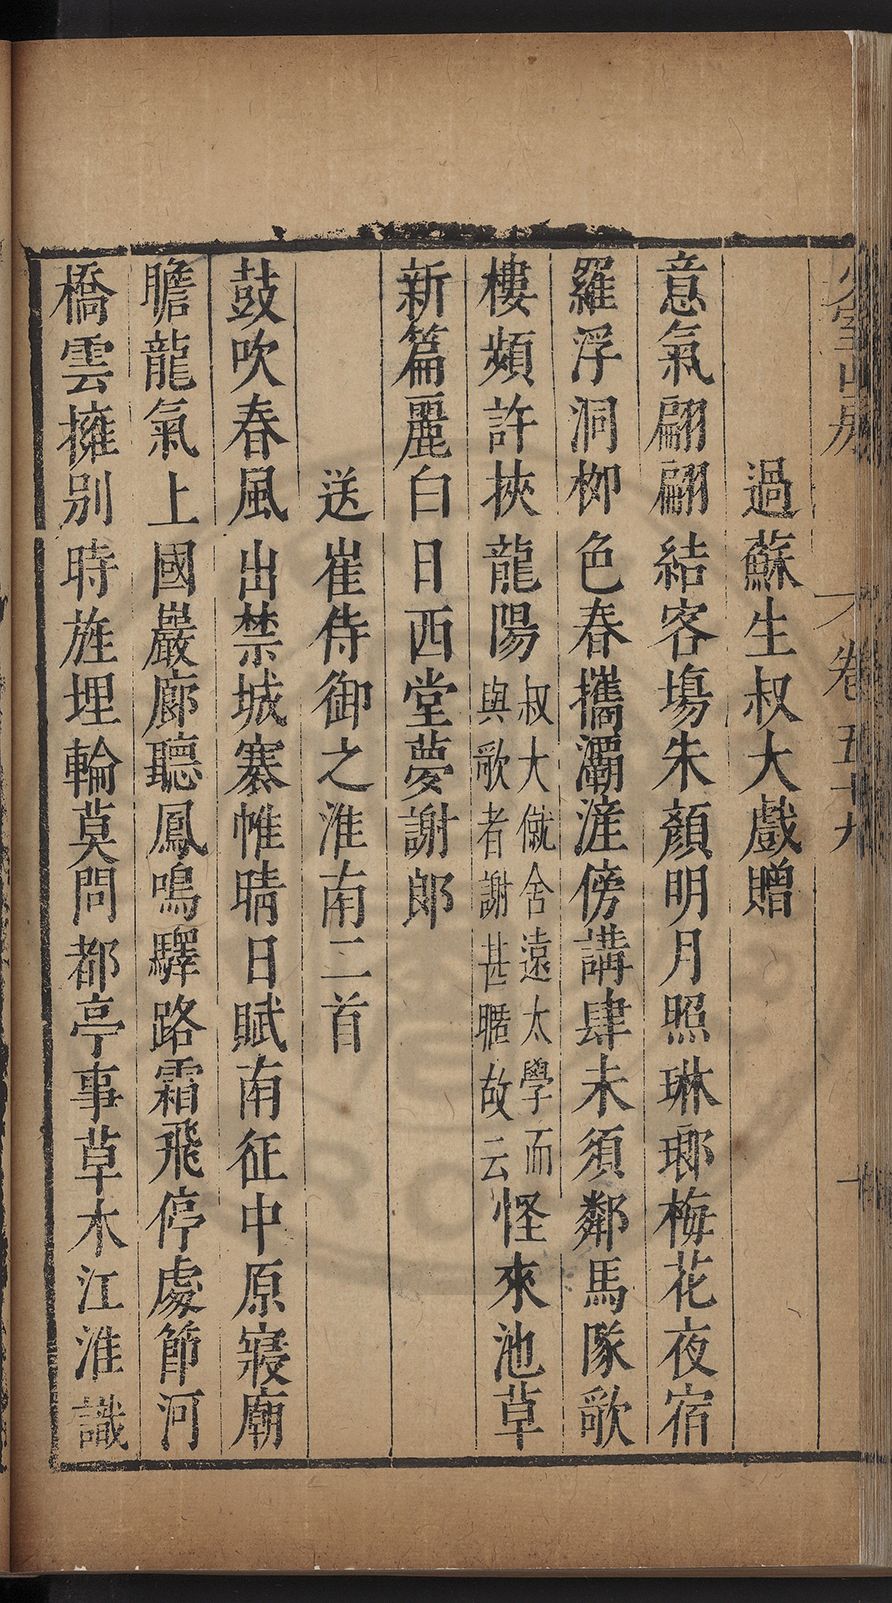 卷五十九
過蘇生叔大戲贈
意氣翩翩結客場朱顏明月照琳瑯梅花夜宿
羅浮洞柳色春攜灞滻傍講肆未須鄰馬隊歌
樓頻許挾龍陽叔大僦舍遠太學而與歌者謝甚暱故云怪來池草
新篇麗白日西堂夢謝郎
送崔侍御之淮南二首
鼓吹春風出禁城褰帷晴日賦南征中原寢廟
瞻龍氣上國巖廊聽鳳鳴驛路霜飛停處節河
橋雲擁別時旌埋輪莫問都亭事草木江淮識